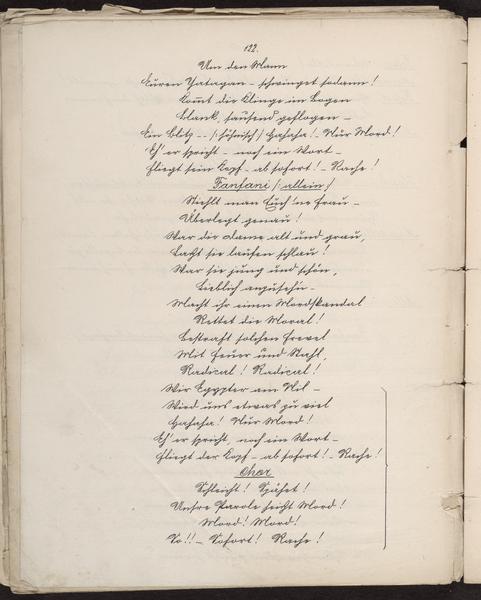 122.
Um den Mann
Euren Yatagan – schwinget sodann!
Saust die Klinge im Bogen
Blank, sausend geflogen –
Ein Blitz – – /: höhnisch :/ Hahaha! – Nur Mord!
Eh' er spricht – noch ein Wort –
Fliegt sein Kopf – ab sofort! – Rache!
Fanfani /: allein :/
Stiehlt man Euch 'ne Frau –
Überlegt genau!
War die Dame alt und grau,
Laßt sie laufen schlau!
War sie jung und schön,
Lieblich anzuseh'n –
Macht ihr einen Mordskandal
Rettet die Moral!
Bestraft solchen Frevel
Mit Feuer und Stahl,
Radical! Radical!
Wir Egypter am Nil –
Wird uns etwas zu viel
Hahaha! Nur Mord!
Eh' er spricht, noch ein Wort –
Fliegt der Kopf – ab sofort! – Rache!
Chor
Schleicht! Spähet!
Unsre Parole heißt Mord!
Mord! Mord!
So!! – Sofort! Rache!